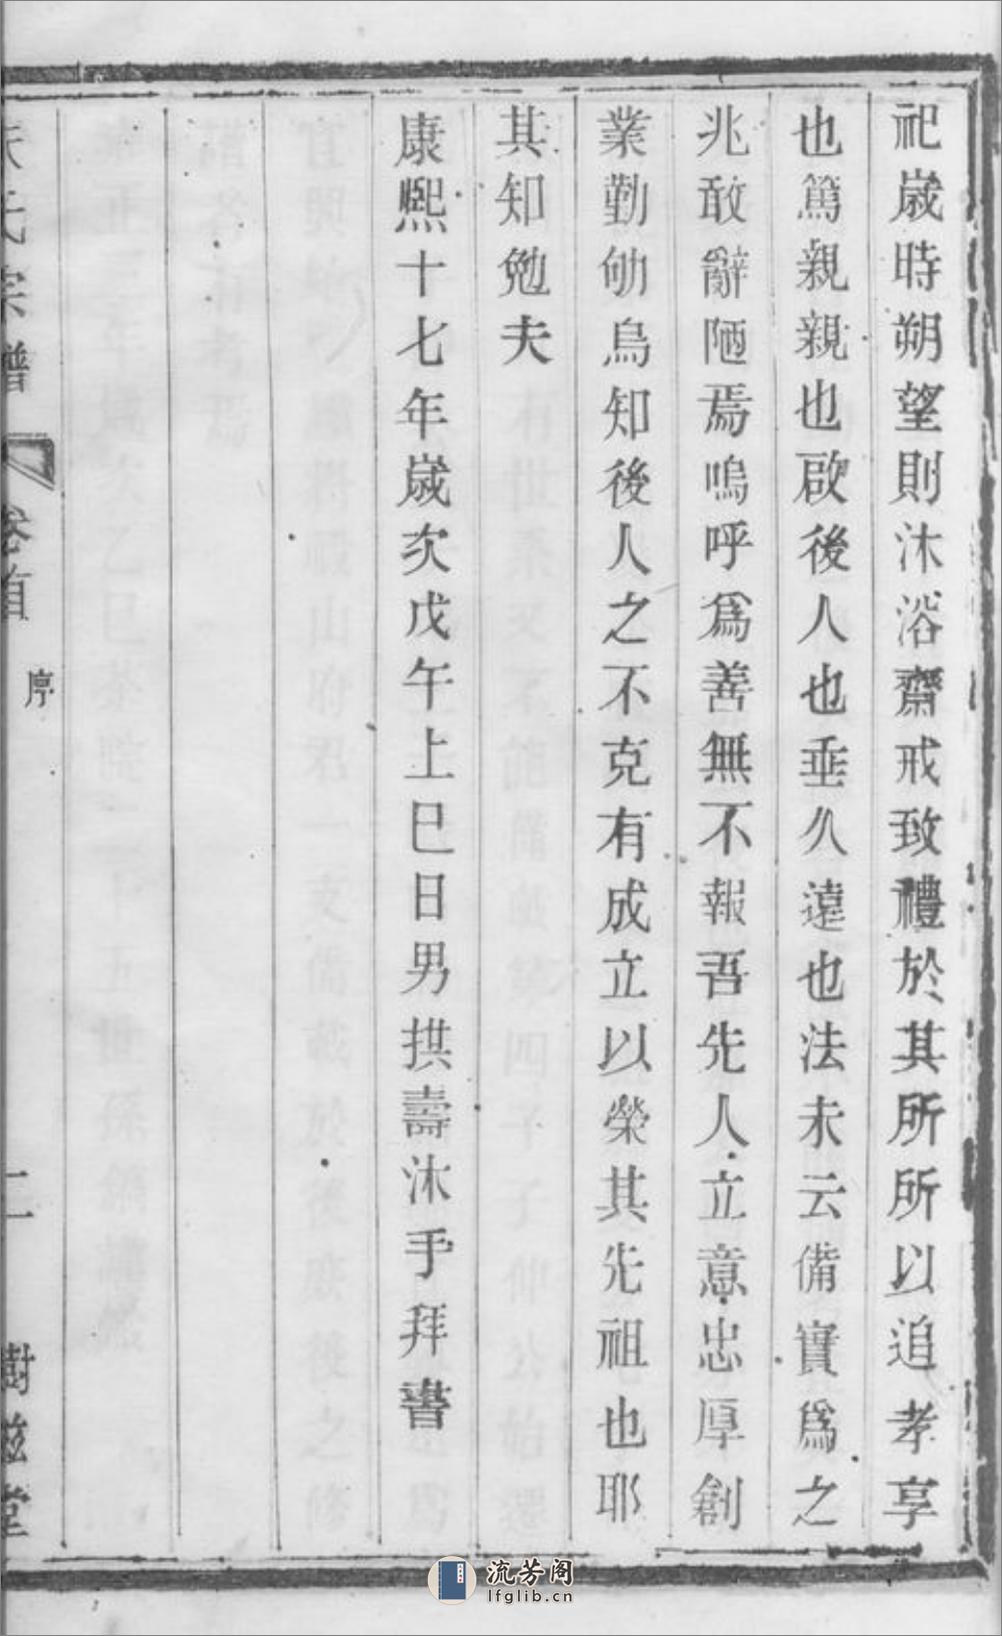 祀歲時朔望則沐浴齋戒致禮於其所所以追孝享
也篤親親也啟後人也垂久遠也法未云備實爲之
兆敢辭陋焉嗚呼爲善無不報吾先人立意忠厚創
業勤劬烏知後人之不克有成立以榮其先祖也耶
其知勉夫
康熙十七年歲次戊午上巳日男拱壽沐手拜書
氏宗譜
卷首
序
二
樹滋堂
流芳阁
lfglib.cn